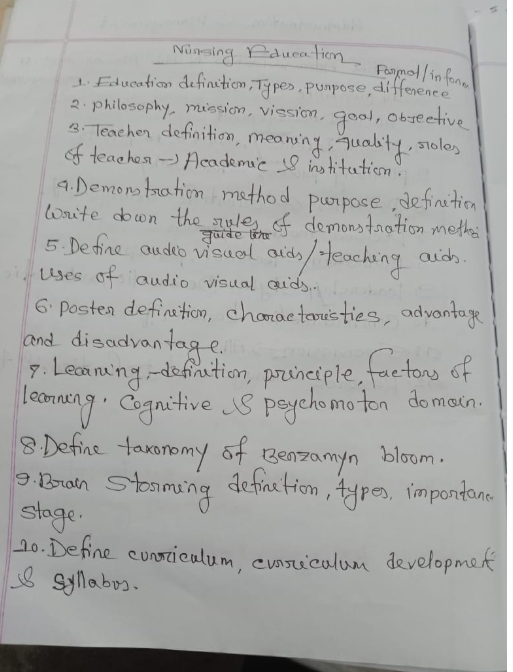 Nursing Education
Formal/infor
1. Education definition, Types, purpose, difference
2. philosophy, mission, vission, goal, objective
3. Teacher definition, meaning, quality, roles
of teacher → Academic & institution.
4. Demonstration method purpose, definition
Write down the rules of demonstration metho
guide line
5. Define audeo visual aids/teaching aids.
Uses of audio visual aids.
6. Poster definition, characteristics, advantage
and disadvantage.
7. Learning,-definition, principle, factors of
learning. Cognitive & psychomotor domain.
8. Define taxonomy of Benzamyn bloom.
9. Brain Storming definition, types, importanc
stage.
10. Define curriculum, curriculum developmet
& syllabus.